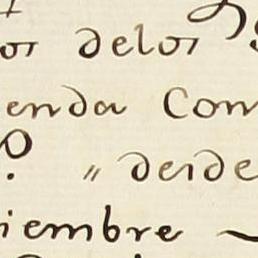 os delos
enda Com
〃 desde
iembre